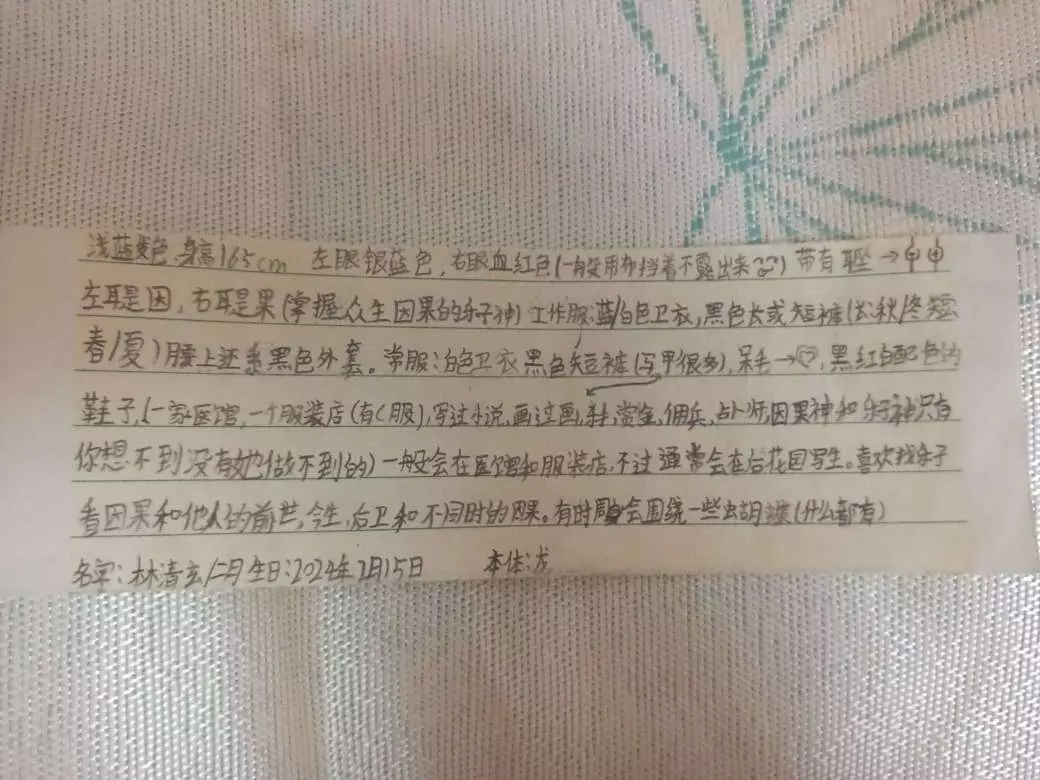 浅蓝发色,身高165cm 左眼银蓝色,右眼血红色(一般用布挡着不露出来) 带有耳坠→
左耳是因,右耳是果(掌握众生因果的乐子神)工作服:蓝/白色卫衣,黑色长或短裤(长秋/冬短
春/夏)腰上还系黑色外套。常服:白色卫衣黑色短裤(马甲很多),呆毛→,黑红白配色的
鞋子,(一家医馆,一个服装店(有C服),写过小说,画过画,杀手,赏金,佣兵,占卜师,因果神和乐子神只有
你想不到没有她做不到的)一般会在医馆和服装店,不过通常会在后花园写生。喜欢找乐子
看因果和他人的前世,今生,后世和不同时的因果。有时周身会围绕一些蝴蝶(什么都有)
名字:林清玄/二月生日:2024年2月15日 本体:龙